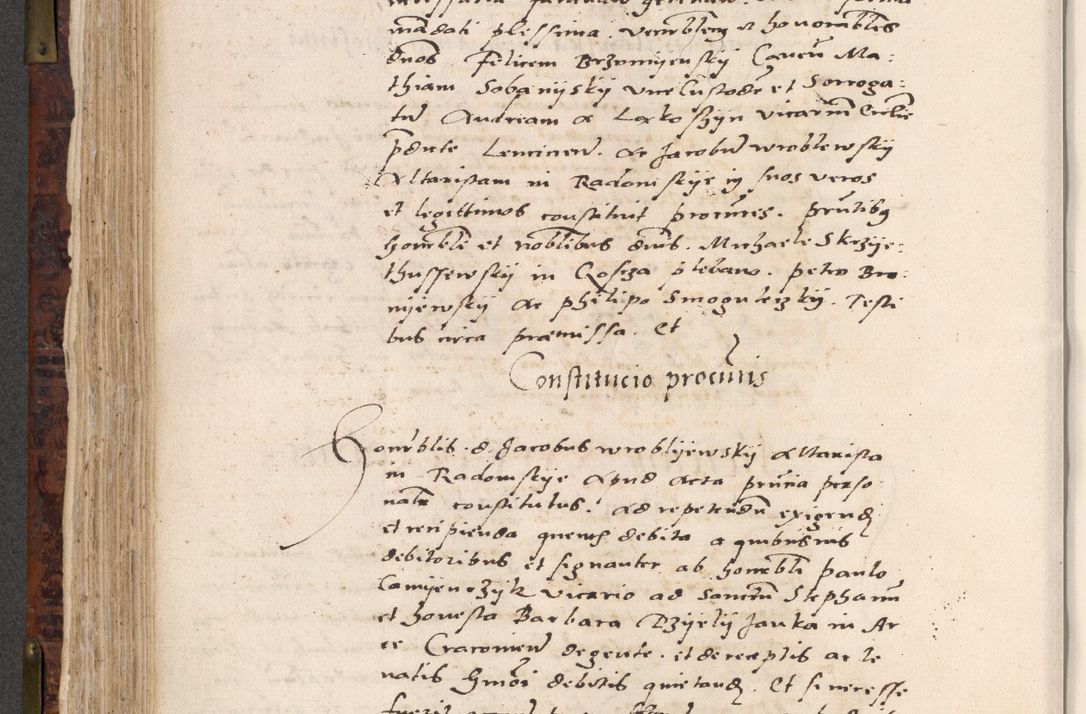 mandati plessima. venerblem et honorabiles
dnos. Felicem Brzomijenskij Canon Ma:
thiam Sobanijskij vice Custode et Sorroga:
tu Andream a Loxkoszijn vicarium
pdente Lencinen. ac Jacobu wroblewskij
Altaristam in Radomskije in suos veros
et legittimos constituit procures. pntibq
honorbli et noblibus dnis. Michaele Skrzije:
thussewskij in Rosza plebano. petro Bro:
nijewskij ac philipo Smoguleczkij. Testi
bus circa praemissa. Et
Constitucio procuris
Honorblis. d. Jacobus wroblijewskij altarista
in Radomskije apud acta pntia perso
nalr constitutus. ad repetendu exigend
et recipienda quevis debita a quibusvis
debitoribus et signanter ab honorbli paulo
Camijenczijk vicario ad Sanctu Stephanu
et honesta Barbara Dzijelij Janka in Ar
ce Cracovien degente. et de receptis ac le
vatis hmoi debitis quietand. Et si necesse